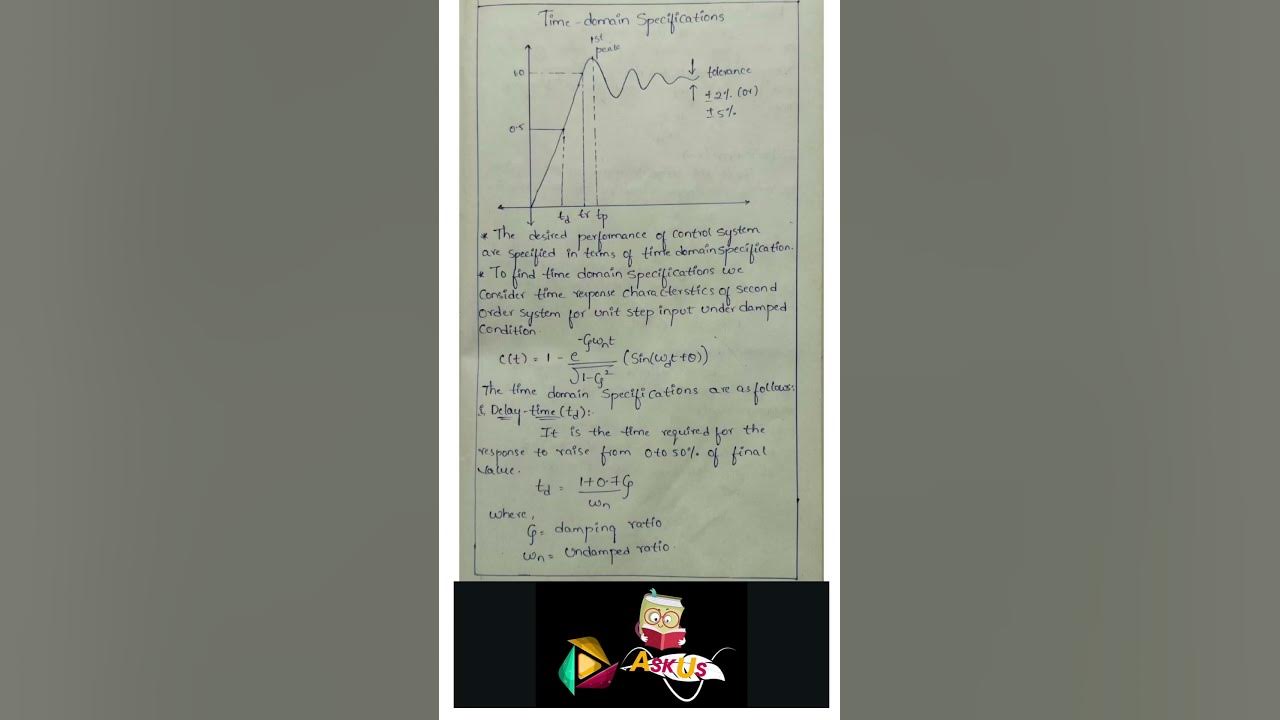 Time-domain Specifications
1st
peak
1.0
0.5
tolerance
±2% (or)
±5%
t_d tr tp
* The desired performance of control system
are specified in terms of time domain specification.
* To find time domain specifications we
Consider time response characterstics of second
order system for unit step input under damped
condition.
c(t) = 1 - e^{-ζω_n t} / √1-ζ² (Sin(ω_d t+θ))
The time domain Specifications are as follows:
1, Delay-time (t_d):-
It is the time required for the
response to raise from 0 to 50% of final
value.
t_d = 1+0.7ζ / ω_n
where,
ζ = damping ratio
ω_n = Undamped ratio.
ASK US